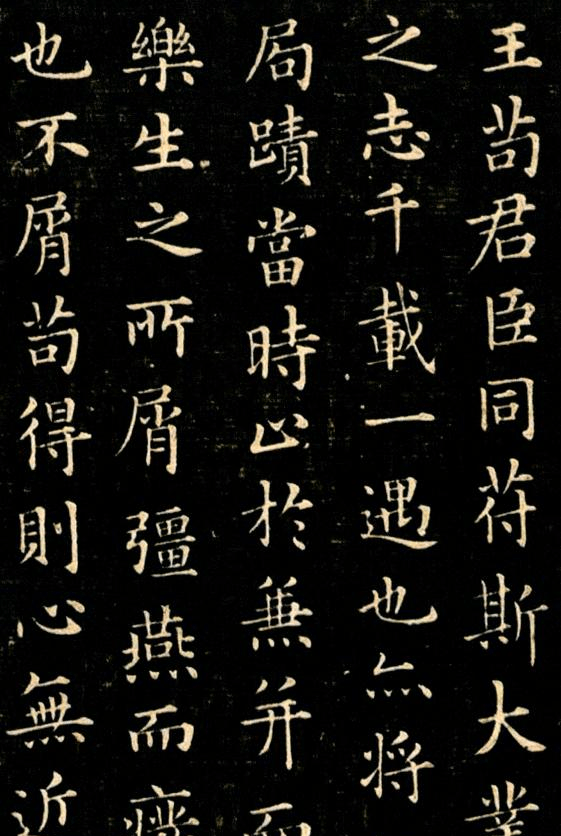 王苟君臣同苻斯大業
之志千載一遇也亦将
局蹟當時止於兼并而
樂生之所屑彊燕而癈
也不屑苟得則心無近